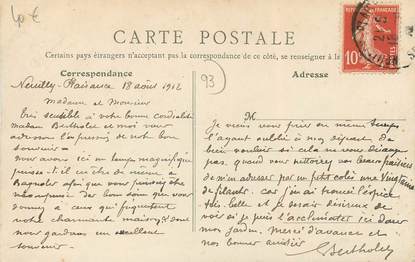 40 €
CARTE POSTALE
Certains pays étrangers n'acceptant pas la correspondance de ce côté, se renseigner à la
Correspondance
93
Adresse
RÉPUBLIQUE FRANÇAISE
10
Neuilly-Plaisance 18 août 1912
Madame et Monsieur
très sensible à votre bonne cordialité
madam Bertholet et moi vous
adressons l'expression de not bon
souvenir -
nous avons ici un temps magnifique
il en être de même à
Bagnoles afin que vous puissiez être
récompensé des bons soins que vous
donnez à ceux qui fréquentent
votre charmante maison dont
nous gardons un excellent
souvenir -
M
Je viens vous prier en même temps
l'ayant oublié à mon départ de
bien vouloir si cela ne vous dérange
pas, quand vous nettoierez vos beaux fraisiers
de m'en adresser par un petit colis une vingtaine
de plants, car j'ai trouvé l'espèce
très belle et je serais désireux de
voir si je puis l'acclimater ici dans
mon jardin. Merci d'avance et
nos bonnes amitiés
Bertholet